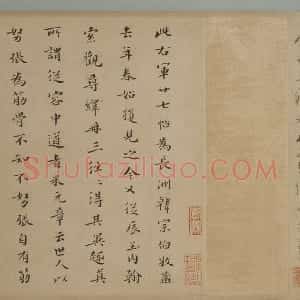 此右軍廿七帖為長洲韓宗伯收蓄
去年春始獲見之今又從辰玉內翰
索觀尋繹再三往往得其異趣真
所謂從容中道者米元章云世人以
努張為筋骨不知不努張自有筋
Shufaziliao.com